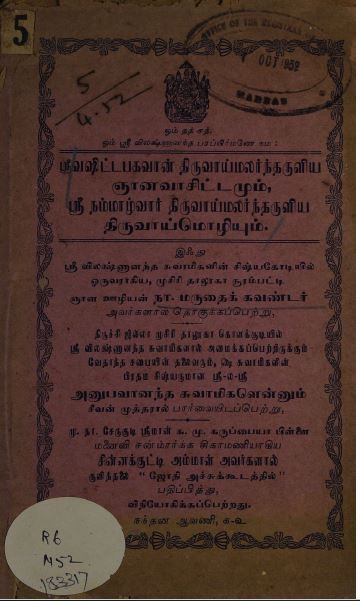 5
OFFICE OF THE REGISTRAR
1 OCT 1952
MADRAS
5
4.52
ஓம் தத் சத்.
ஓம் ஸ்ரீ விலக்ஷணாநந்த பரப்பிரம்மணே நம:
ஸ்ரீவஷிட்டபகவான் திருவாய்மலர்ந்தருளிய
ஞானவாசிட்டமும்,
ஸ்ரீ நம்மாழ்வார் திருவாய்மலர்ந்தருளிய
திருவாய்மொழியும்.
இஃது
ஸ்ரீ விலக்ஷணாநந்த சுவாமிகளின் சிஷ்யகோடியில்
ஒருவராகிய, முசிரி தாலூகா நாரம்பட்டி
ஞான ஊழியன் நா. மருதைக் கவண்டர்
அவர்களால் தொகுக்கப்பெற்று,
திருச்சி ஜில்லா முசிரி தாலூகா கொளக்குடியில்
ஸ்ரீ விலக்ஷணாநந்த சுவாமிகளால் அமைக்கப்பெற்றிருக்கும்
வேதாந்த சபையின் தலைவரும், ஷை சுவாமிகளின்
பிரதம சிஷ்யருமான ஸ்ரீ-ல-ஸ்ரீ
அனுபவானந்த சுவாமிகளென்னும்
சிவன் முத்தரால் பார்வையிடப்பெற்று,
மு. நா. சேருகுடி ஸ்ரீமான் க. மு. கருப்பையா பிள்ளை
மனைவி சன்மார்க்க சிகாமணியாகிய
சின்னக்குட்டி அம்மாள் அவர்களால்
குளித்தலை "ஜோதி அச்சுக்கூடத்தில்"
பதிப்பித்து,
விநியோகிக்கப்பெற்றது.
நந்தன ஆவணி, க-உ
R6
N52
183317